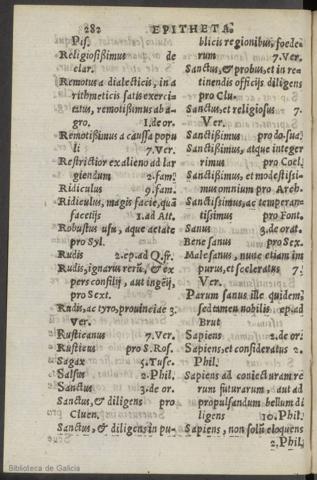 282 EPITHETA.
Pis.
Religiosißimus de
clar.
Remotus a dialecticis, in a
rithmeticis satis exerci
tatus, remotissimus ab a-
gro. 1.de or.
Remotißimus a caussa popu
li 7.Ver.
Restrictior ex alieno ad lar
giendum 2.fam.
Ridiculus 9.fam.
Ridiculus, magis facie, quã
facetijs 1.ad Att.
Robustus usu, æque aetate
pro Syl.
Rudis 2.ep.ad Q.fr.
Rudis, ignarus rerũ, & ex
pers consilij, aut ingeij,
pro Sext.
Rudis, ac tyro, prouinciae 3.
Ver.
Rusticanus 7.Ver.
Rusticus pro S.Ros.
Sagax 5.Tusc.
Salsus 2.Phil.
Sanctus 3.de or.
Sanctus, & diligens pro
Cluen.
Sanctus, & diligens in pu-
blicis regionibus, foede-
rum 7.Ver.
Sanctus, & probus, et in re
tinendis officijs diligens
pro Clu.
Sanctus, et religiosus 7.
Ver.
Sanctißimus pro do.sua.
Sanctißimus, atque integer
rimus pro Coel.
Sanctißimus, et modestissi-
mus omnium pro Arch.
Sanctissimus, ac temperan-
tissimus pro Font.
Sanus 3.de orat.
Bene sanus pro Sex.
Male sanus, nunc etiam im
purus, et sceleratus 7.
Ver.
Parum sanus ille quidem,
sed tamen nobilis ep.ad
Brut
Sapiens 2.de or.
Sapiens, et consideratus 2.
Phil.
Sapiens ad coniecturam re
rum futurarum, aut ad
propulsandum bellum di
ligens 10.Phil.
Sapiens, non solũ eloquens
2.Phil.
Biblioteca de Galicia